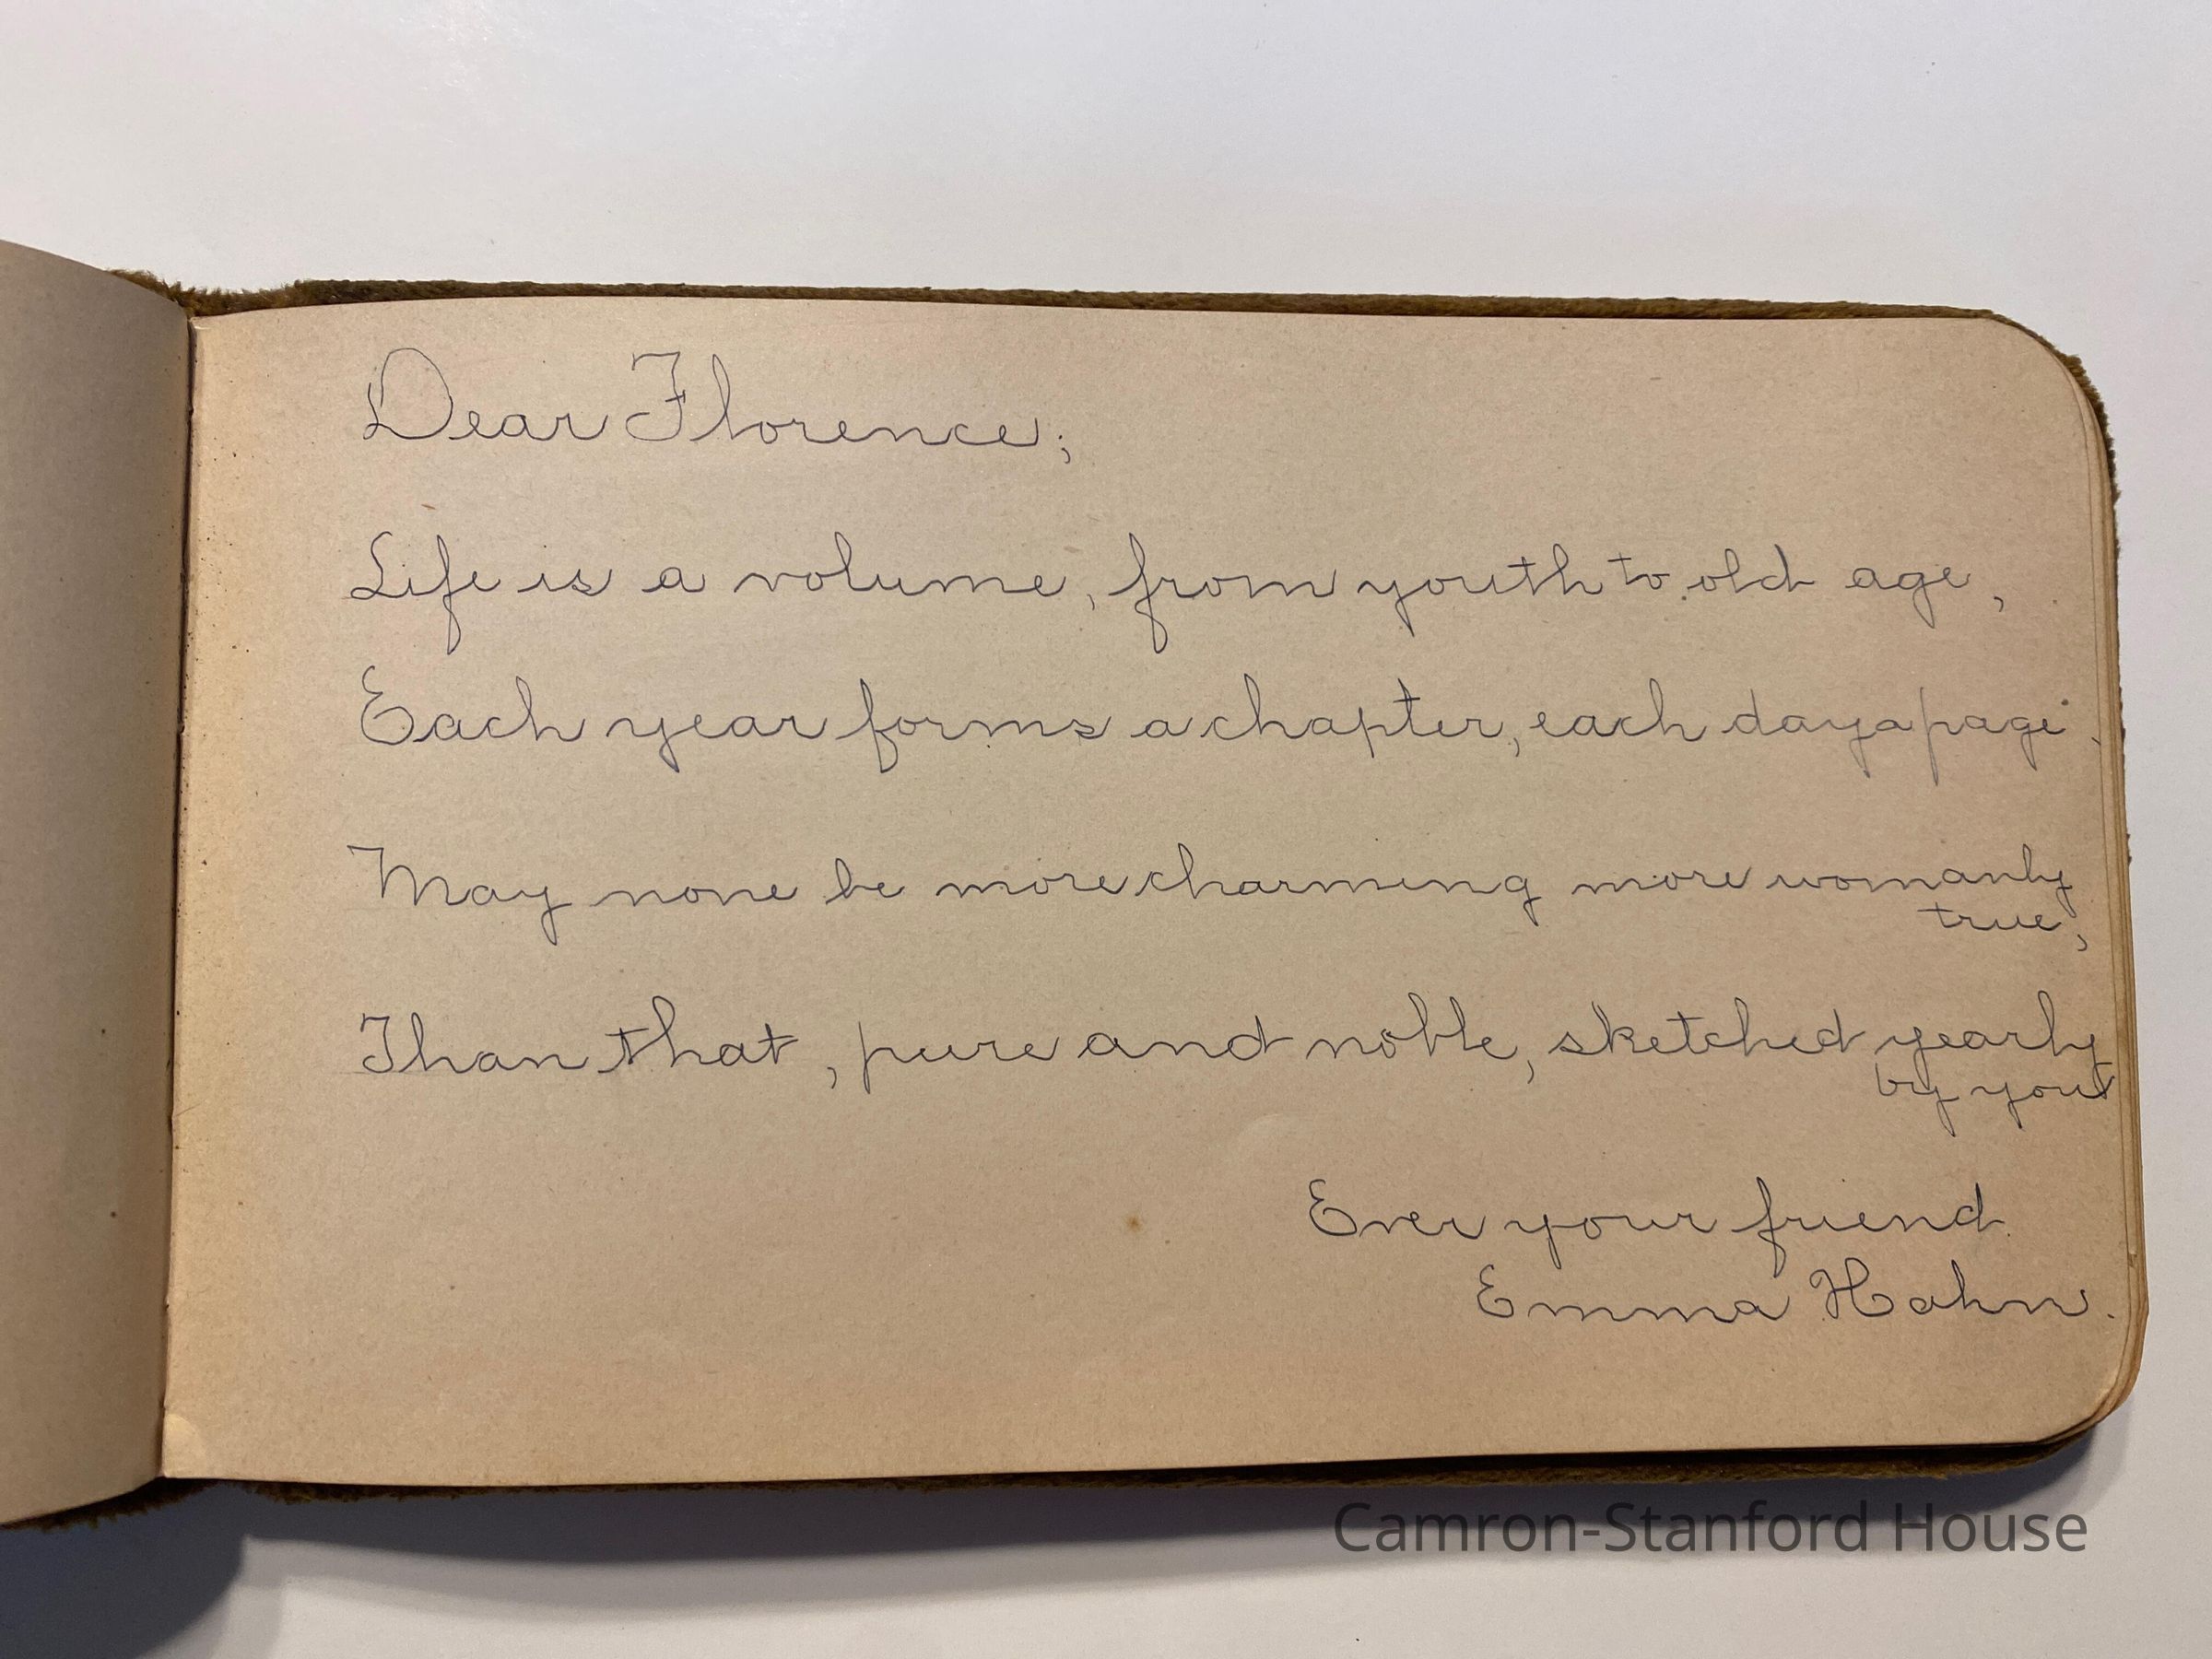 Dear Florence;
Life is a volume, from youth to old age,
Each year forms a chapter, each day a page.
May none be more charming more womanly
true,
Than that, pure and noble, sketched yearly
by you
Ever your friend.
Emma Hahn.
Camron-Stanford House